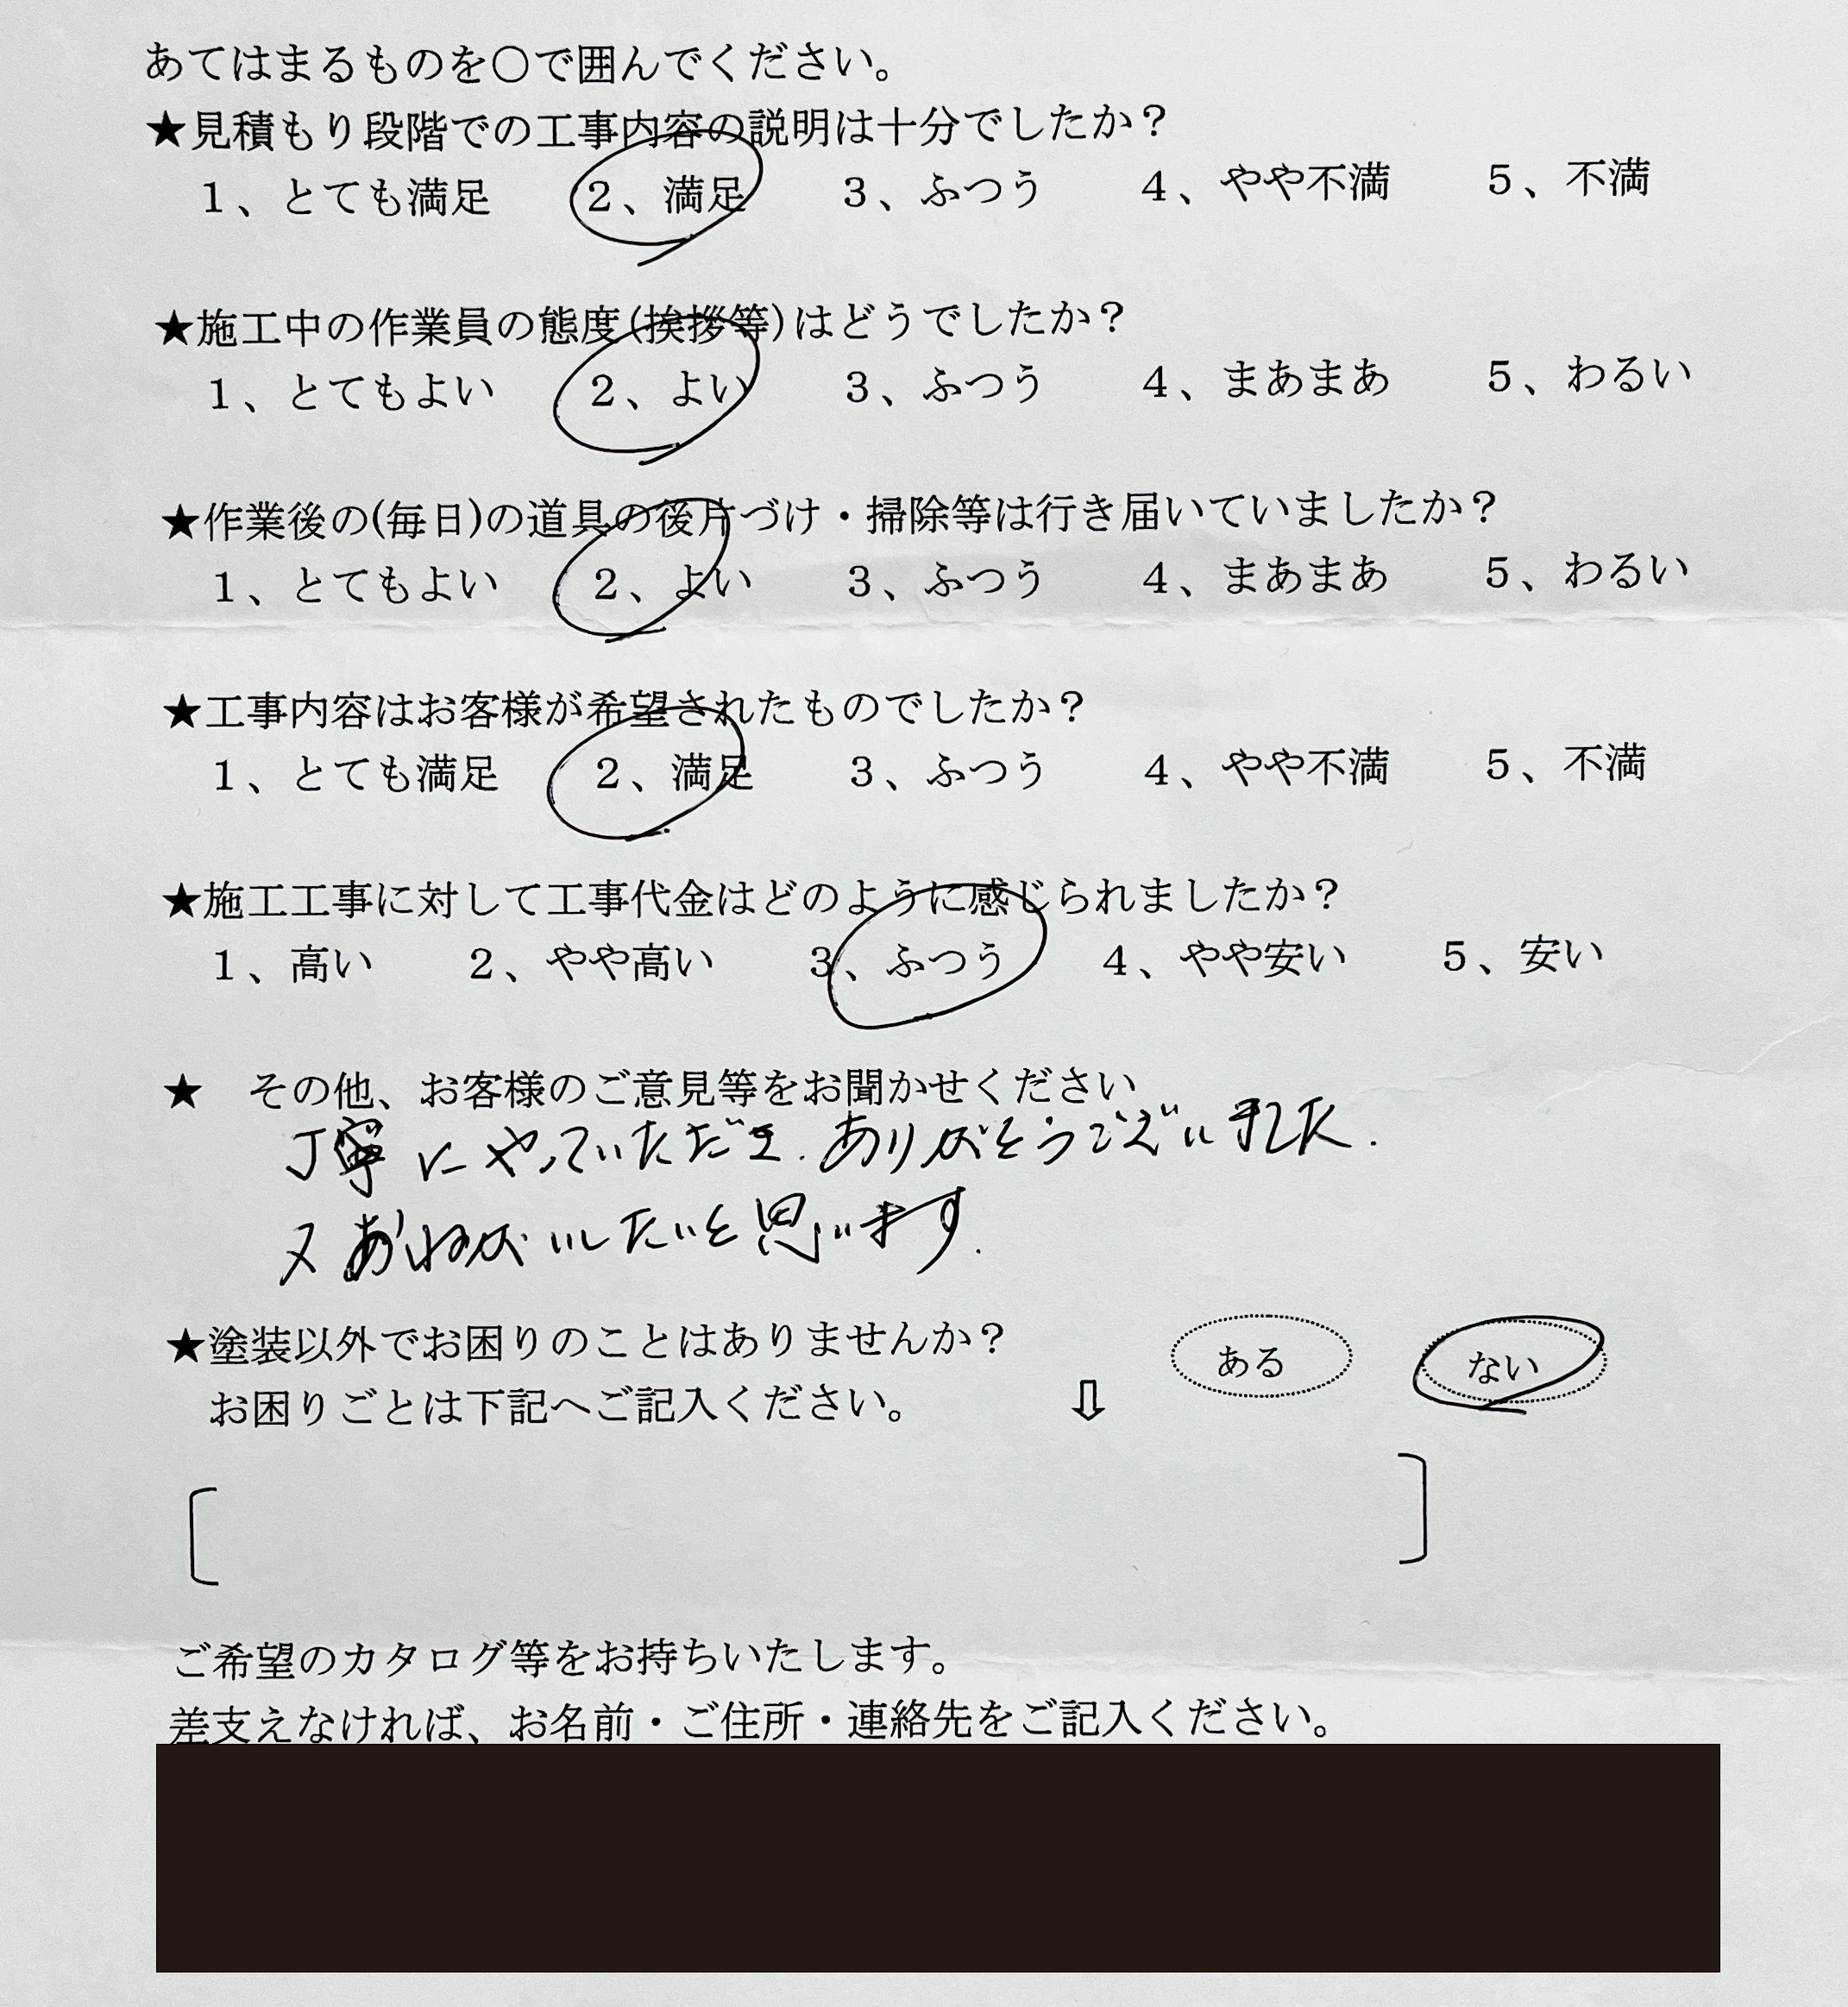 あてはまるものを〇で囲んでください。
★見積もり段階での工事内容の説明は十分でしたか？
１、とても満足　２、満足　３、ふつう　４、やや不満　５、不満
★施工中の作業員の態度(挨拶等)はどうでしたか？
１、とてもよい　２、よい　３、ふつう　４、まあまあ　５、わるい
★作業後の(毎日)の道具の後片づけ・掃除等は行き届いていましたか？
１、とてもよい　２、よい　３、ふつう　４、まあまあ　５、わるい
★工事内容はお客様が希望されたものでしたか？
１、とても満足　２、満足　３、ふつう　４、やや不満　５、不満
★施工工事に対して工事代金はどのように感じられましたか？
１、高い　２、やや高い　３、ふつう　４、やや安い　５、安い
★　その他、お客様のご意見等をお聞かせください
丁寧にやっていただき.ありがとうございました.
又おねがいしたいと思います.
★塗装以外でお困りのことはありませんか？　ある　ない
お困りごとは下記へご記入ください。　⇩
ご希望のカタログ等をお持ちいたします。
差支えなければ、お名前・ご住所・連絡先をご記入ください。